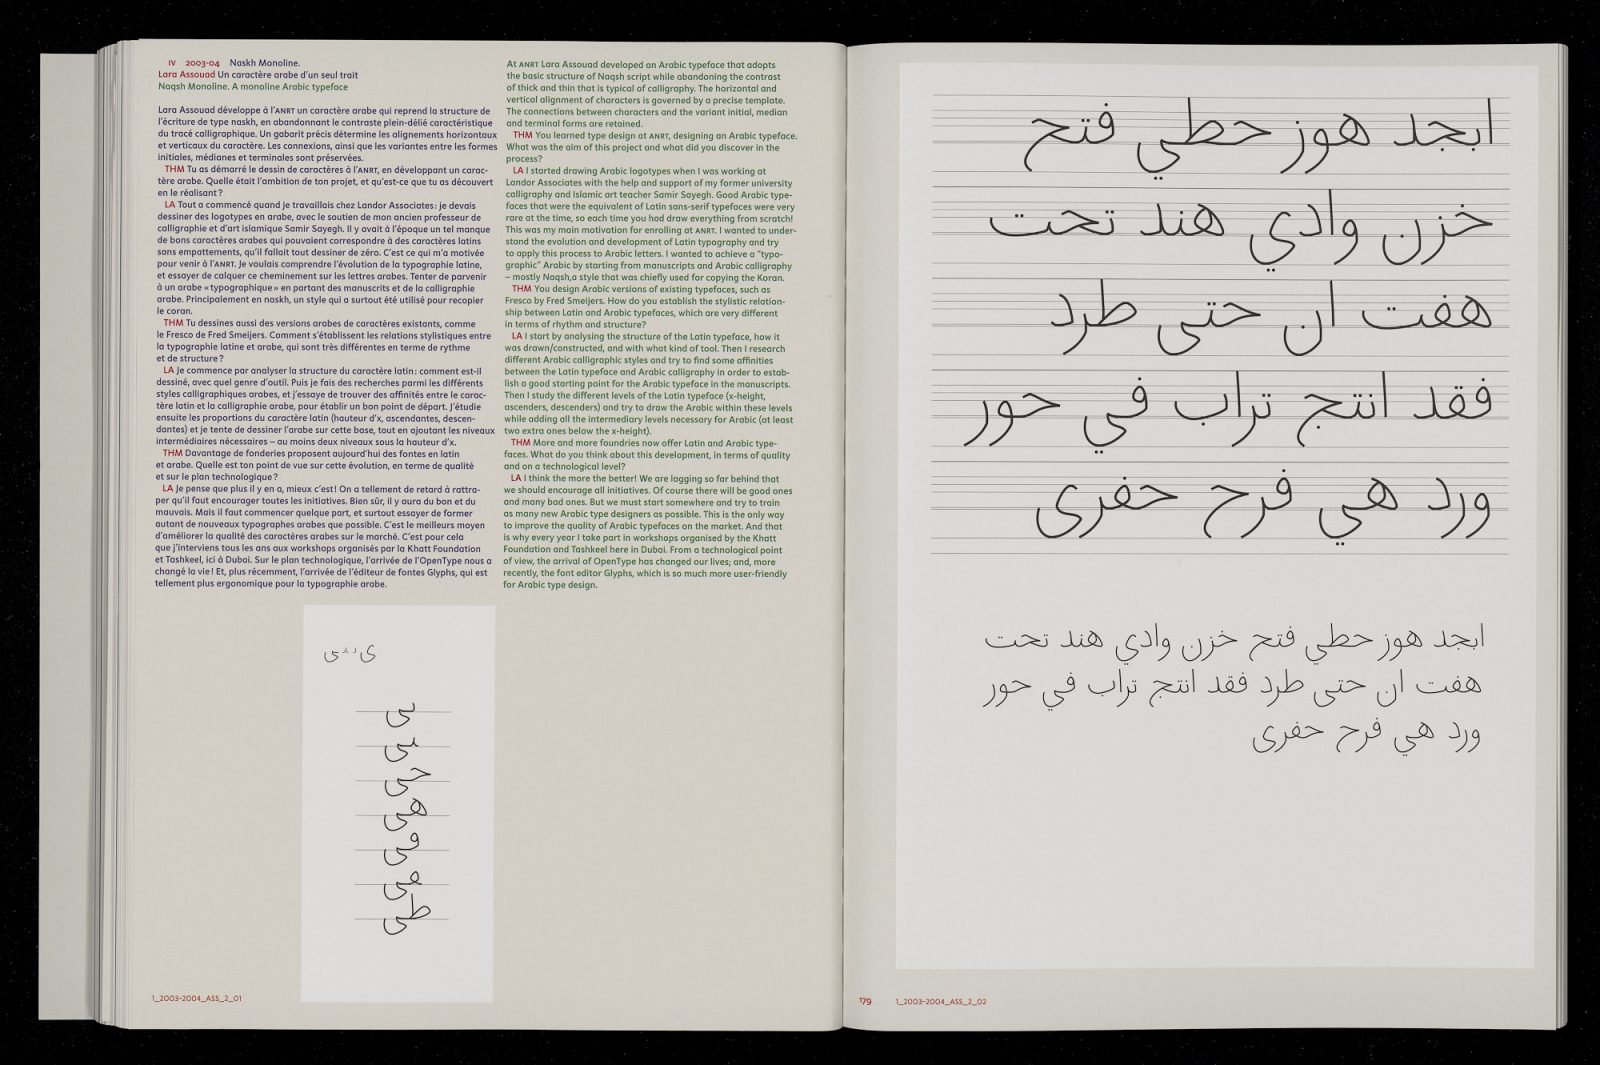 IV 2003-04 Naskh Monoline.
Lara Assouad Un caractère arabe d'un seul trait
Naqsh Monoline. A monoline Arabic typeface
Lara Assouad développe à l'ANRT un caractère arabe qui reprend la structure de
l'écriture de type naskh, en abandonnant le contraste plein-délié caractéristique
du tracé calligraphique. Un gabarit précis détermine les alignements horizontaux
et verticaux du caractère. Les connexions, ainsi que les variantes entre les formes
initiales, médianes et terminales sont préservées.
THM Tu as démarré le dessin de caractères à l'ANRT, en développant un carac-
tère arabe. Quelle était l'ambition de ton projet, et qu'est-ce que tu as découvert
en le réalisant ?
LA Tout a commencé quand je travaillais chez Landor Associates : je devais
dessiner des logotypes en arabe, avec le soutien de mon ancien professeur de
calligraphie et d'art islamique Samir Sayegh. Il y avait à l'époque un tel manque
de bons caractères arabes qui pouvaient correspondre à des caractères latins
sans empattements, qu'il fallait tout dessiner de zéro. C'est ce qui m'a motivée
pour venir à l'ANRT. Je voulais comprendre l'évolution de la typographie latine,
et essayer de calquer ce cheminement sur les lettres arabes. Tenter de parvenir
à un arabe « typographique » en partant des manuscrits et de la calligraphie
arabe. Principalement en naskh, un style qui a surtout été utilisé pour recopier
le coran.
THM Tu dessines aussi des versions arabes de caractères existants, comme
le Fresco de Fred Smeijers. Comment s'établissent les relations stylistiques entre
la typographie latine et arabe, qui sont très différentes en terme de rythme
et de structure ?
LA Je commence par analyser la structure du caractère latin : comment est-il
dessiné, avec quel genre d'outil. Puis je fais des recherches parmi les différents
styles calligraphiques arabes, et j'essaye de trouver des affinités entre le carac-
tère latin et la calligraphie arabe, pour établir un bon point de départ. J'étudie
ensuite les proportions du caractère latin (hauteur d'x, ascendantes, descen-
dantes) et je tente de dessiner l'arabe sur cette base, tout en ajoutant les niveaux
intermédiaires nécessaires – au moins deux niveaux sous la hauteur d'x.
THM Davantage de fonderies proposent aujourd'hui des fontes en latin
et arabe. Quelle est ton point de vue sur cette évolution, en terme de qualité
et sur le plan technologique ?
LA Je pense que plus il y en a, mieux c'est ! On a tellement de retard à rattra-
per qu'il faut encourager toutes les initiatives. Bien sûr, il y aura du bon et du
mauvais. Mais il faut commencer quelque part, et surtout essayer de former
autant de nouveaux typographes arabes que possible. C'est le meilleurs moyen
d'améliorer la qualité des caractères arabes sur le marché. C'est pour cela
que j'interviens tous les ans aux workshops organisés par la Khatt Foundation
et Tashkeel, ici à Dubai. Sur le plan technologique, l'arrivée de l'OpenType nous a
changé la vie ! Et, plus récemment, l'arrivée de l'éditeur de fontes Glyphs, qui est
tellement plus ergonomique pour la typographie arabe.
At ANRT Lara Assouad developed an Arabic typeface that adopts
the basic structure of Naqsh script while abandoning the contrast
of thick and thin that is typical of calligraphy. The horizontal and
vertical alignment of characters is governed by a precise template.
The connections between characters and the variant initial, median
and terminal forms are retained.
THM You learned type design at ANRT, designing an Arabic typeface.
What was the aim of this project and what did you discover in the
process?
LA I started drawing Arabic logotypes when I was working at
Landor Associates with the help and support of my former university
calligraphy and Islamic art teacher Samir Sayegh. Good Arabic type-
faces that were the equivalent of Latin sans-serif typefaces were very
rare at the time, so each time you had draw everything from scratch!
This was my main motivation for enrolling at ANRT. I wanted to under-
stand the evolution and development of Latin typography and try
to apply this process to Arabic letters. I wanted to achieve a “typo-
graphic” Arabic by starting from manuscripts and Arabic calligraphy
– mostly Naqsh,a style that was chiefly used for copying the Koran.
THM You design Arabic versions of existing typefaces, such as
Fresco by Fred Smeijers. How do you establish the stylistic relation-
ship between Latin and Arabic typefaces, which are very different
in terms of rhythm and structure?
LA I start by analysing the structure of the Latin typeface, how it
was drawn/constructed, and with what kind of tool. Then I research
different Arabic calligraphic styles and try to find some affinities
between the Latin typeface and Arabic calligraphy in order to estab-
lish a good starting point for the Arabic typeface in the manuscripts.
Then I study the different levels of the Latin typeface (x-height,
ascenders, descenders) and try to draw the Arabic within these levels
while adding all the intermediary levels necessary for Arabic (at least
two extra ones below the x-height).
THM More and more foundries now offer Latin and Arabic type-
faces. What do you think about this development, in terms of quality
and on a technological level?
LA I think the more the better! We are lagging so far behind that
we should encourage all initiatives. Of course there will be good ones
and many bad ones. But we must start somewhere and try to train
as many new Arabic type designers as possible. This is the only way
to improve the quality of Arabic typefaces on the market. And that
is why every year I take part in workshops organised by the Khatt
Foundation and Tashkeel here in Dubai. From a technological point
of view, the arrival of OpenType has changed our lives; and, more
recently, the font editor Glyphs, which is so much more user-friendly
for Arabic type design.
حى
هى
فى
مى
طى
1_2003-2004_ASS_2_01
ابجد هوز حطي فتح
خزن وادي هند تحت
هفت ان حتى طرد
فقد انتج تراب في حور
ورد هي فرح حفرى
ابجد هوز حطي فتح خزن وادي هند تحت
هفت ان حتى طرد فقد انتج تراب في حور
ورد هي فرح حفرى
179 1_2003-2004_ASS_2_02